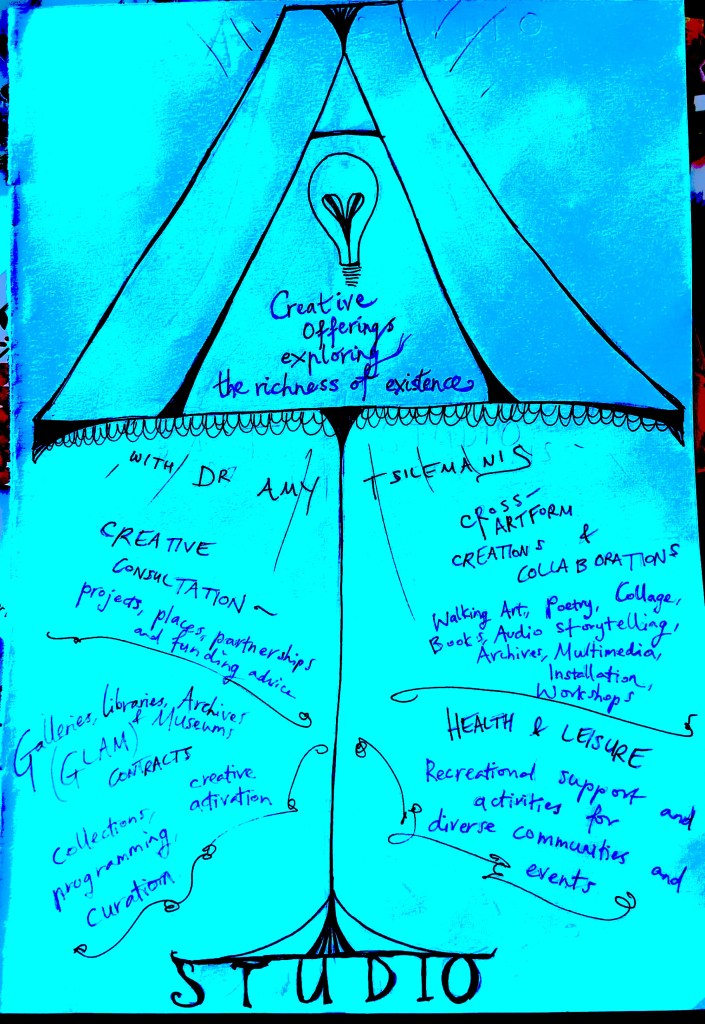 Creative
Offerings
exploring
the richness of existence
WITH DR AMY TSILEMANIS
CREATIVE
CONSULTATION ~
projects, places, partnerships
and funding advice
Galleries, Libraries, Archives
& Museums
(GLAM)
CONTRACTS
creative
activation
Collections,
programming,
curation
CROSS-
ARTFORM
CREATIONS &
COLLABORATIONS
Walking Art, Poetry, Collage,
Books, Audio Storytelling,
Archives, Multimedia,
Installation,
Workshops
HEALTH & LEISURE
Recreational support and
activities for
diverse communities and
events
STUDIO